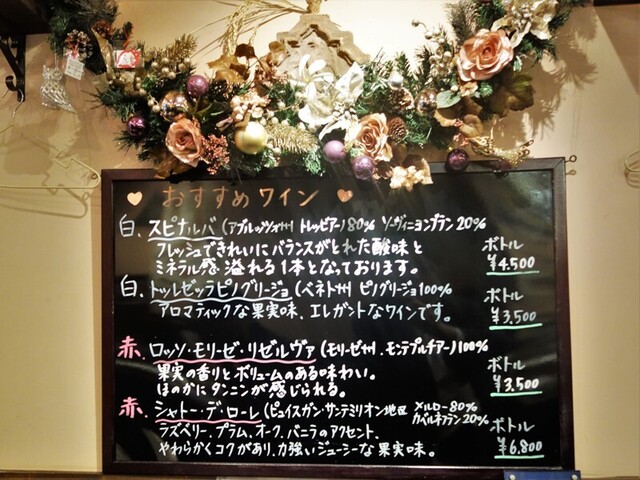 ♥ おすすめワイン ♥
白、スピナルバ (アブルッツォ州 トレッビアーノ) 80% ソーヴィニヨンブラン 20%
フレッシュできれいにバランスがとれた酸味と
ミネラル感溢れる1本となっております。
ボトル
¥4,500
白、トッレゼッラピノグリージョ (ベネト州 ピノグリージョ100%
アロマティックな果実味、エレガントなワインです。
ボトル
¥3,500
赤、ロッソ・モリーゼ・リゼルヴァ (モリーゼ州、モンテプルチアーノ) 100%
果実の香りとボリュームのある味わい。
ほのかにタンニンが感じられる。
ボトル
¥3,500
赤、シャトー・デ・ローレ (ピュイスガン・サンテミリオン地区 メルロー80%
カベルネフラン20%
ラズベリー、プラム、オーク、バニラのアクセント、
やわらかくコクがあり、力強いジューシーな果実味。
ボトル
¥6,800